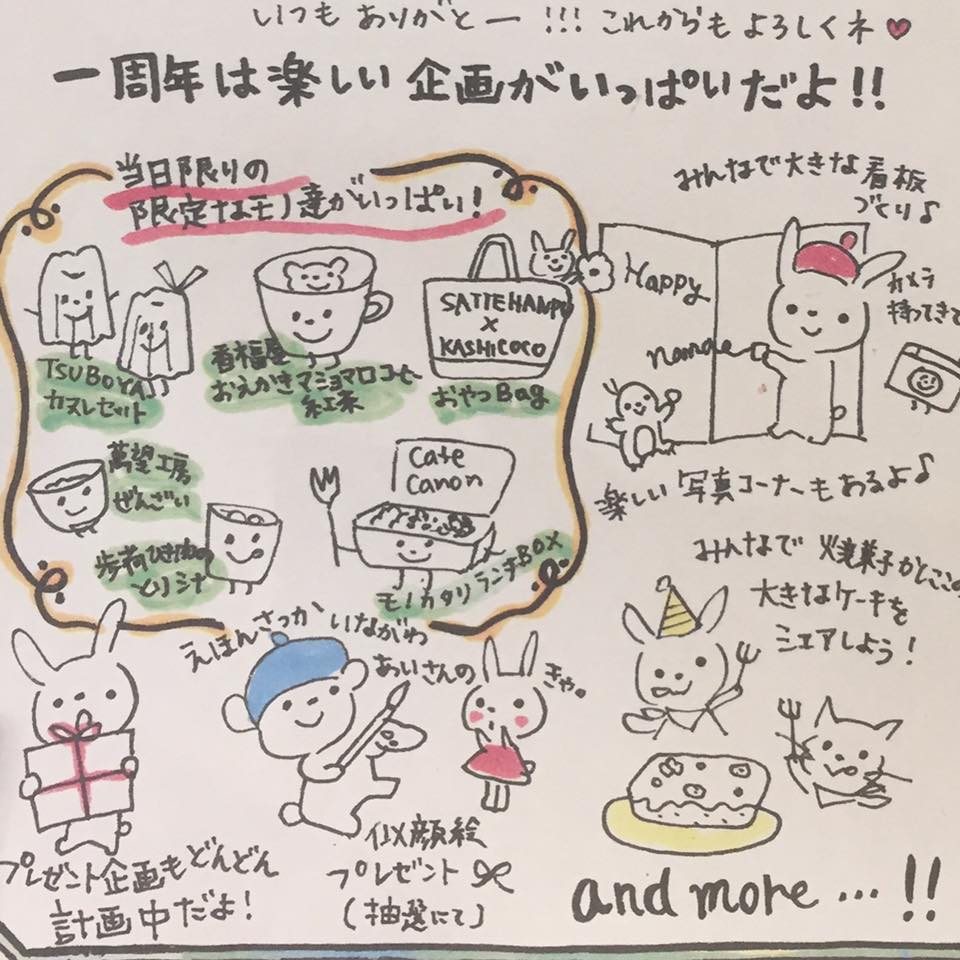 いつも ありがとー !!! これからも よろしくネ
一周年は楽しい企画がいっぱいだよ!!
当日限りの
限定なモノ達がいっぱい!
TSUBOYA
カヌレセット
看福屋
おえかきマショマロココア
紅茶
SATTEHANPU
×
KASHICOCO
おやつBag
萬望工房
ぜんざい
歩荷ひき肉の
Cafe
Canon
モノカタリランチBOX
みんなで大きな看板
づくり♪
Happy
カメラ
持ってきて
楽しい写真コーナーもあるよ♪
みんなで 焼菓子かとここの
大きなケーキを
シェアしよう!
えほんさっか いながわ
あいさんの
きゃ。
似顔絵
プレゼント
(抽選にて)
プレゼント企画もどんどん
計画中だよ!
and more ... !!